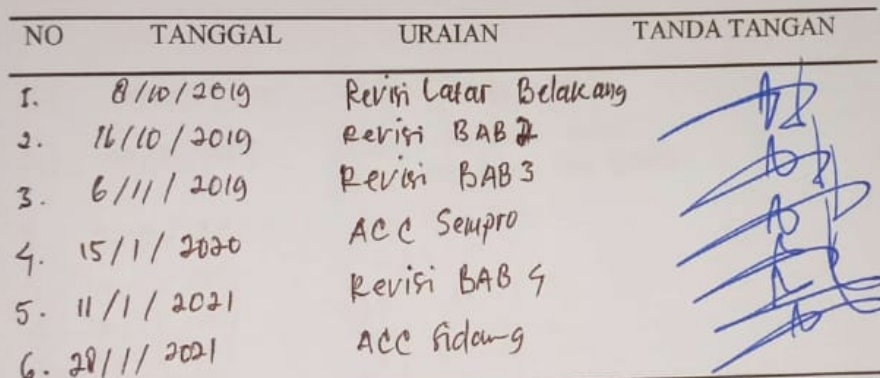 NO TANGGAL URAIAN TANDA TANGAN
1. 8/10/2019 Revisi Latar Belakang
2. 16/10/2019 Revisi BAB 2
3. 6/11/2019 Revisi BAB 3
4. 15/1/2020 ACC Sempro
5. 11/1/2021 Revisi BAB 4
6. 28/1/2021 ACC Sidang